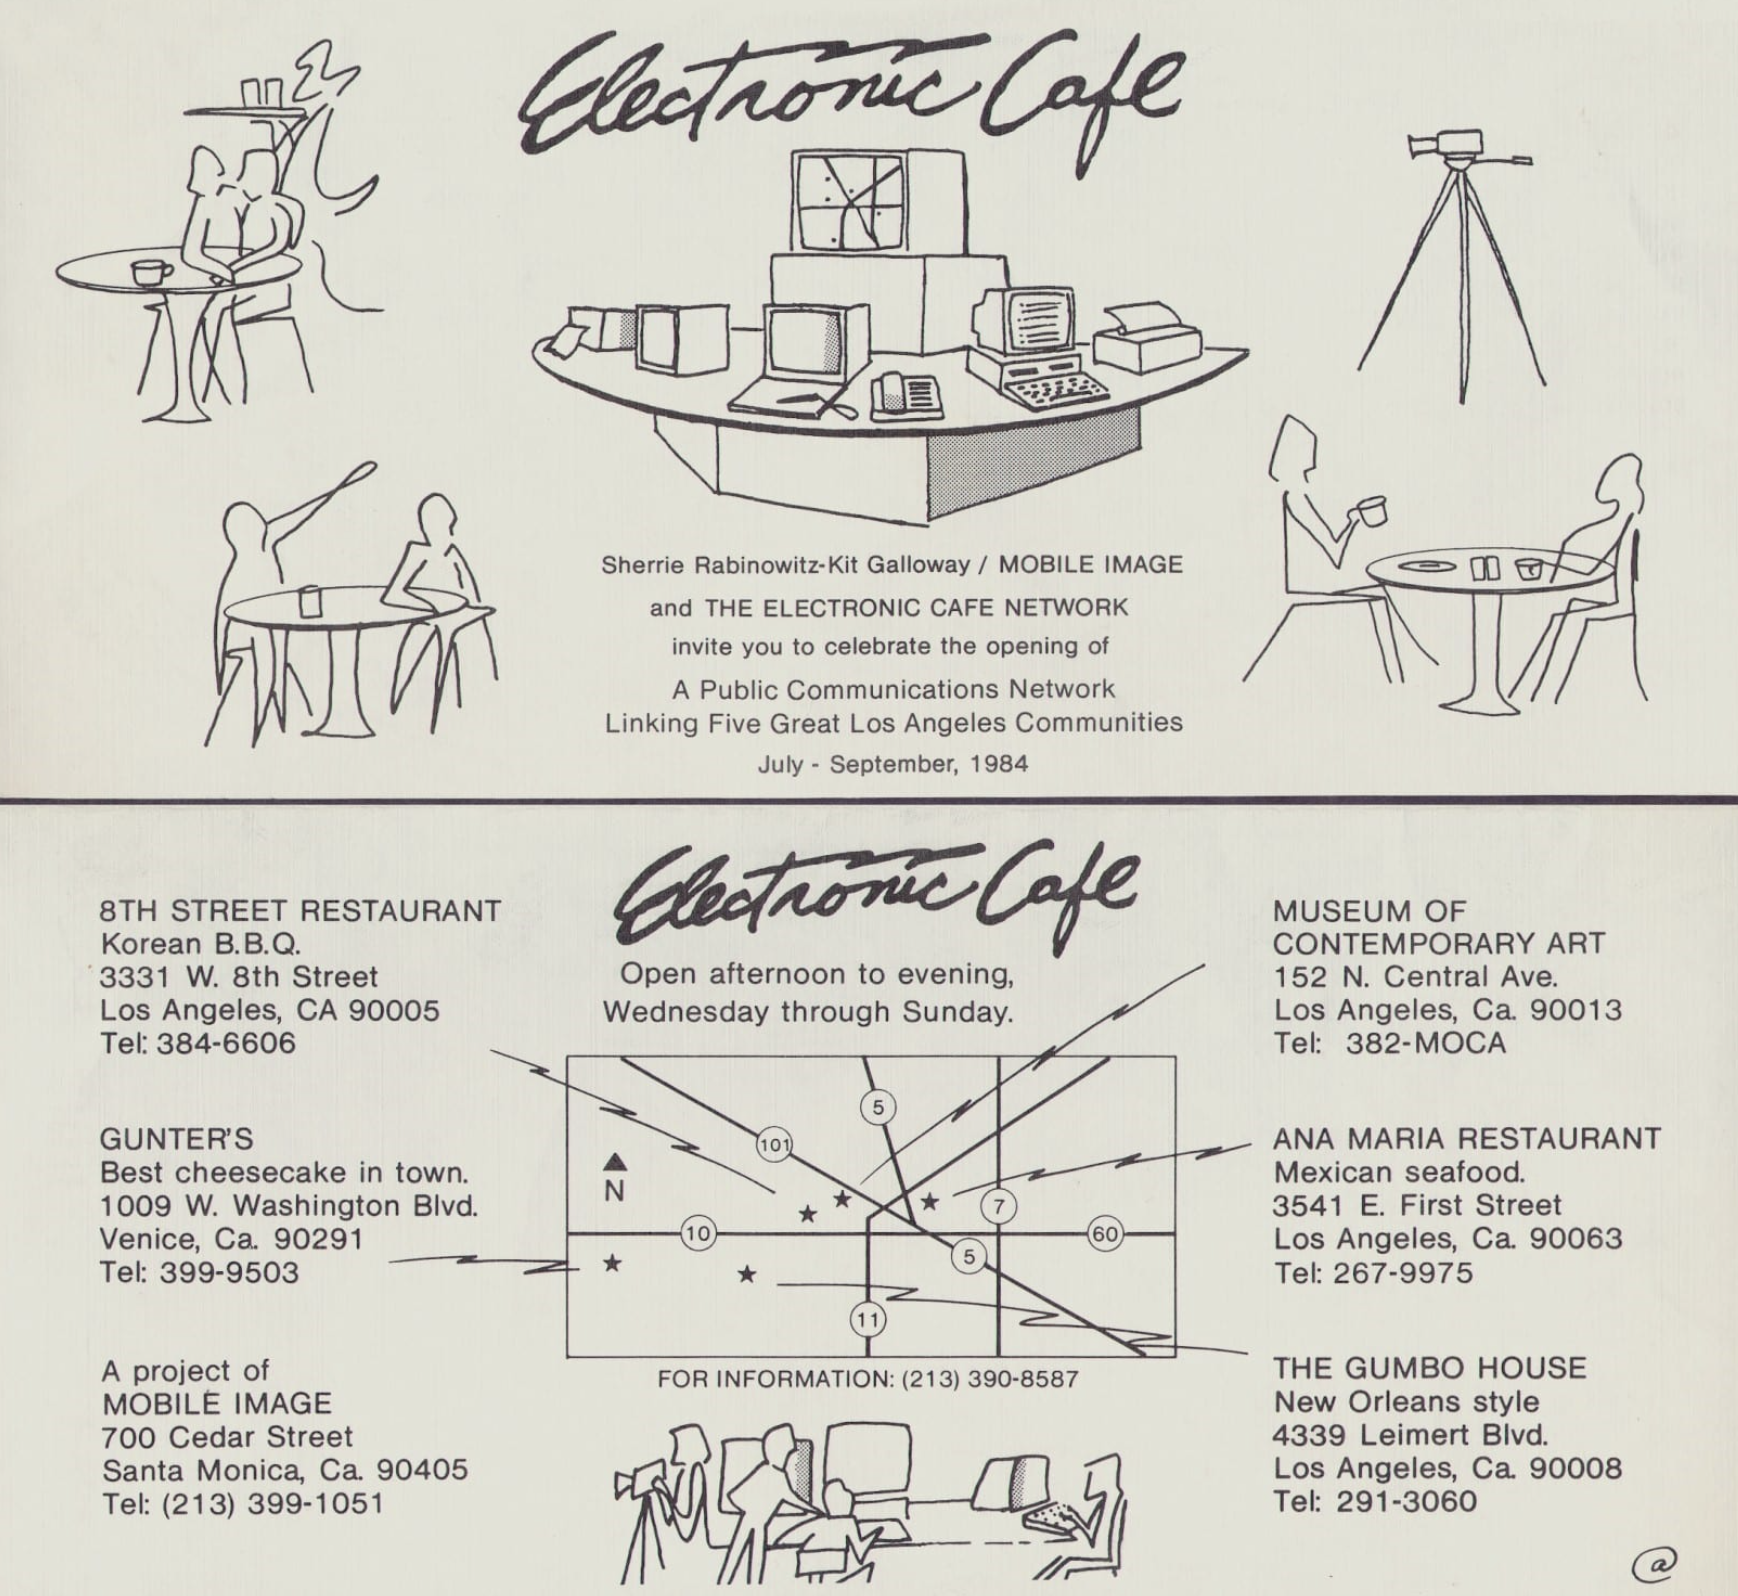 Electronic Cafe
Sherrie Rabinowitz-Kit Galloway / MOBILE IMAGE
and THE ELECTRONIC CAFE NETWORK
invite you to celebrate the opening of
A Public Communications Network
Linking Five Great Los Angeles Communities
July - September, 1984
Electronic Cafe
Open afternoon to evening,
Wednesday through Sunday.
8TH STREET RESTAURANT
Korean B.B.Q.
3331 W. 8th Street
Los Angeles, CA 90005
Tel: 384-6606
GUNTER'S
Best cheesecake in town.
1009 W. Washington Blvd.
Venice, Ca. 90291
Tel: 399-9503
A project of
MOBILE IMAGE
700 Cedar Street
Santa Monica, Ca. 90405
Tel: (213) 399-1051
5
101
N
7
10
60
5
11
FOR INFORMATION: (213) 390-8587
MUSEUM OF
CONTEMPORARY ART
152 N. Central Ave.
Los Angeles, Ca. 90013
Tel: 382-MOCA
ANA MARIA RESTAURANT
Mexican seafood.
3541 E. First Street
Los Angeles, Ca. 90063
Tel: 267-9975
THE GUMBO HOUSE
New Orleans style
4339 Leimert Blvd.
Los Angeles, Ca. 90008
Tel: 291-3060
@